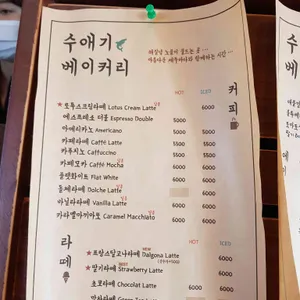 수애기
베이커리
커피
HOT ICED
★로투스크림라떼 Lotus Cream Latte 6000
에스프레소 더블 Espresso Double 5000
아메리카노 Americano 5000 5000
카페라떼 Caffé Latte 5500 5500
카푸치노 Caffuccino 5500 5500
카페모카 Caffé Mocha 6000 6000
플랫화이트 Flat White 6000 6000
돌체라떼 Dolche Latte 6000
바닐라라떼 Vanilla Latte 6000 6000
카라멜마끼아또 Caramel Macchiato 6000 6000
라떼
HOT ICED
NEW
Dalgona Latte 6000
BEST
★딸기라떼 Strawberry Latte 6000
초코라떼 Chocolat Latte 6000 6000